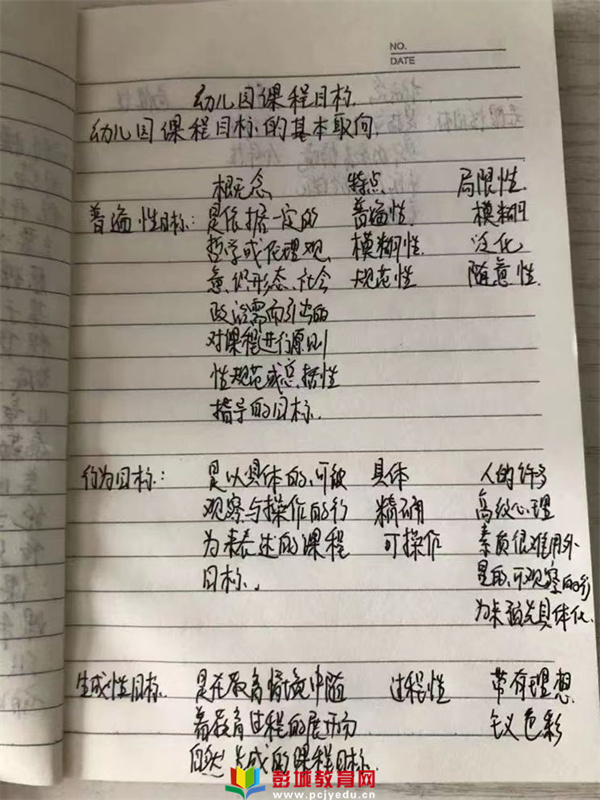 NO.
DATE
幼儿园课程目标.
幼儿园课程目标的基本取向.
概念 特点 局限性.
普遍性目标: 是依据一定的 普遍性. 模糊
哲学或伦理观、 模糊性. 泛化
意识形态、社会 规范性 随意性.
政治需而引出的
对课程进行原则
性规范或总括性
指导的目标.
行为目标: 是以具体的、可被 具体 人的许多
观察与操作的行 精确 高级心理
为来表述的课程 可操作 素质很难用外
目标. 显的、可观察的行
为来预先具体化.
生成性目标. 是在教育情境中随 过程性 带有理想
着教育过程的展开而 主义色彩
自然生成的课程目标.
彭城教育网
www.pcjyedu.cn